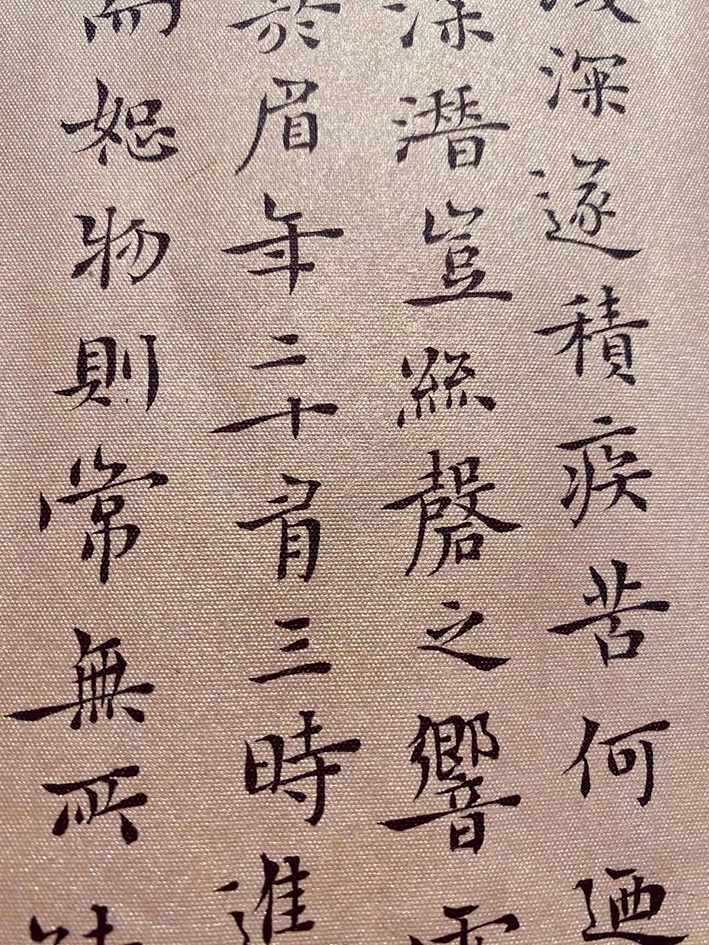 深遂積疾苦何迺
深潛豈絲磬之響
於眉年二十有三時進
而恕物則常無所